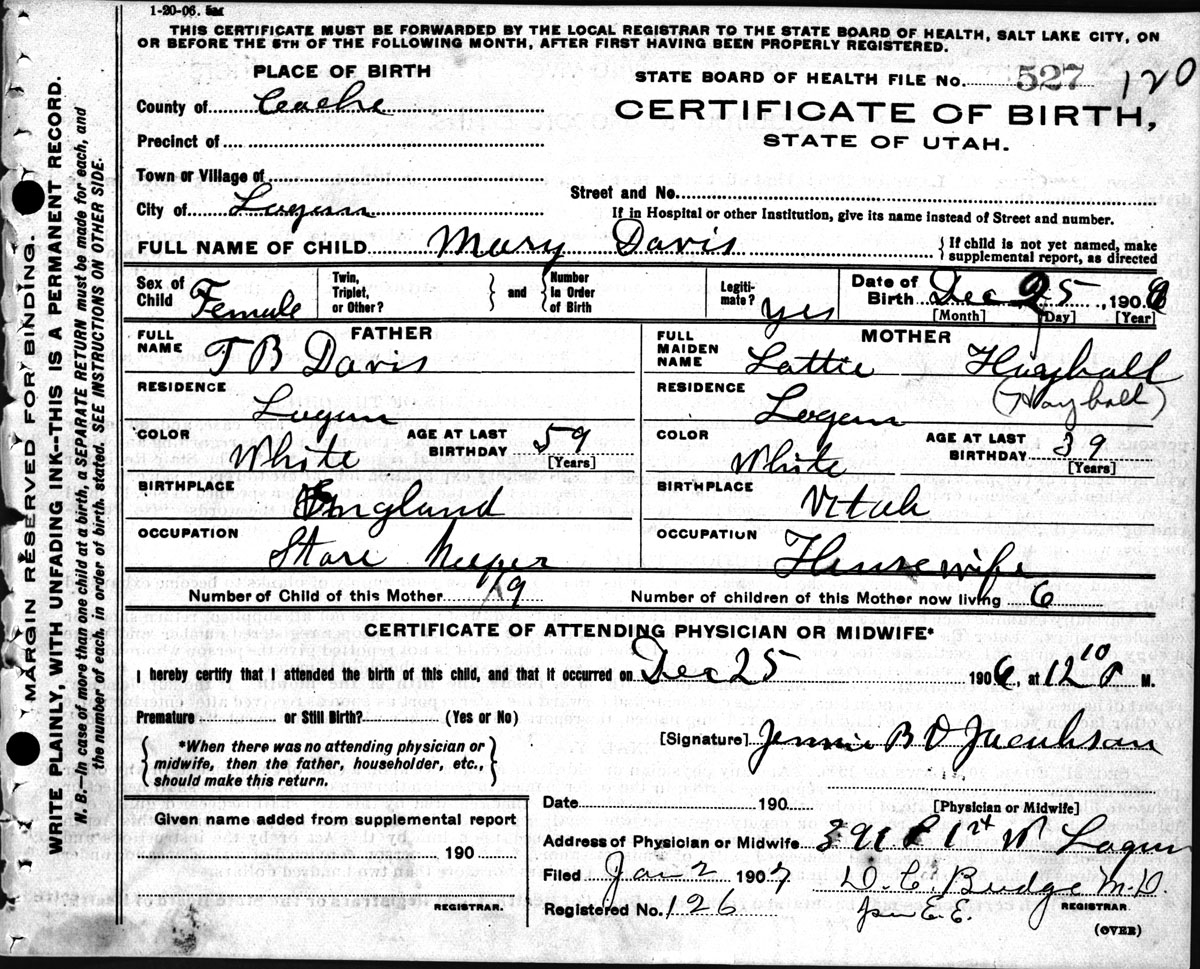 1-20-06.
THIS CERTIFICATE MUST BE FORWARDED BY THE LOCAL REGISTRAR TO THE STATE BOARD OF HEALTH, SALT LAKE CITY, ON
OR BEFORE THE 5TH OF THE FOLLOWING MONTH, AFTER FIRST HAVING BEEN PROPERLY REGISTERED.
MARGIN RESERVED FOR BINDING.
WRITE PLAINLY, WITH UNFADING INK--THIS IS A PERMANENT RECORD.
N. B.--In case of more than one child at a birth, a SEPARATE RETURN must be made for each, and
the number of each, in order of birth, stated. SEE INSTRUCTIONS ON OTHER SIDE.
PLACE OF BIRTH
STATE BOARD OF HEALTH FILE No. 527 120
County of Cache
CERTIFICATE OF BIRTH,
STATE OF UTAH.
Precinct of
Town or Village of
Street and No.
City of Logan
If in Hospital or other Institution, give its name instead of Street and number.
FULL NAME OF CHILD Mary Davis
{ If child is not yet named, make
supplemental report, as directed
Sex of Child Female
Twin, Triplet, or Other?
} and {
Number In Order of Birth
Legiti- mate? yes
Date of Birth Dec 25, 1906
[Month] [Day] [Year]
FATHER
FULL NAME T B Davis
MOTHER
FULL MAIDEN NAME Lottie Hayball
RESIDENCE Logan
RESIDENCE Logan (Hayball)
COLOR White AGE AT LAST BIRTHDAY 59 [Years]
COLOR White AGE AT LAST BIRTHDAY 39 [Years]
BIRTHPLACE England
BIRTHPLACE Utah
OCCUPATION Store Keeper
OCCUPATION Housewife
Number of Child of this Mother 9 Number of children of this Mother now living 6
CERTIFICATE OF ATTENDING PHYSICIAN OR MIDWIFE*
I hereby certify that I attended the birth of this child, and that it occurred on Dec 25 1906, at 12 10 P M.
Premature or Still Birth? (Yes or No)
{ *When there was no attending physician or
midwife, then the father, householder, etc.,
should make this return. }
[Signature] Jennie B D Jacobson
[Physician or Midwife]
Given name added from supplemental report
190
REGISTRAR.
Date 190
Address of Physician or Midwife 1st W Logan
Filed Jan 2 1907 D. C. Budge M.D.
REGISTRAR
Registered No. 126 per E.E.
(OVER)